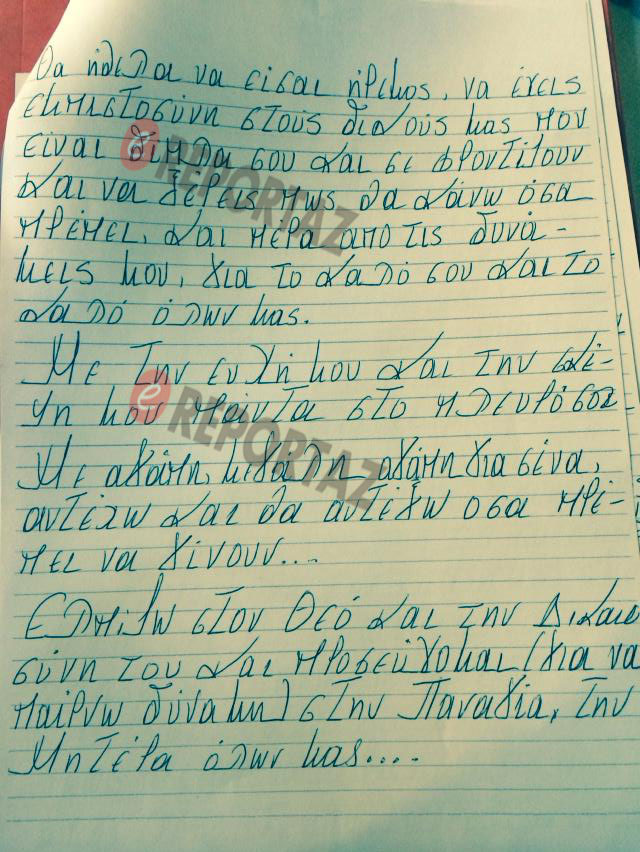 Θα ήθελα να είσαι ήρεμος, να έχεις
εμπιστοσύνη στους δικούς μας που
είναι δίπλα σου και σε φροντίζουν
και να ξέρεις πως θα κάνω όσα
πρέπει, και πέρα από τις δυνά-
μεις μου, για το καλό σου και το
καλό όλων μας.
Με την ευχή μου και την σκέ-
ψη μου πάντα στο πλευρό σου
Με αγάπη, μεγάλη αγάπη για σένα,
αντέχω και θα αντέξω όσα πρέ-
πει να γίνουν....
Ελπίζω στον Θεό και την Δικαιο
σύνη του και προσεύχομαι (για να
παίρνω δύναμη) στην Παναγία, την
Μητέρα όλων μας....
e REPORTAZ
e REPORTAZ